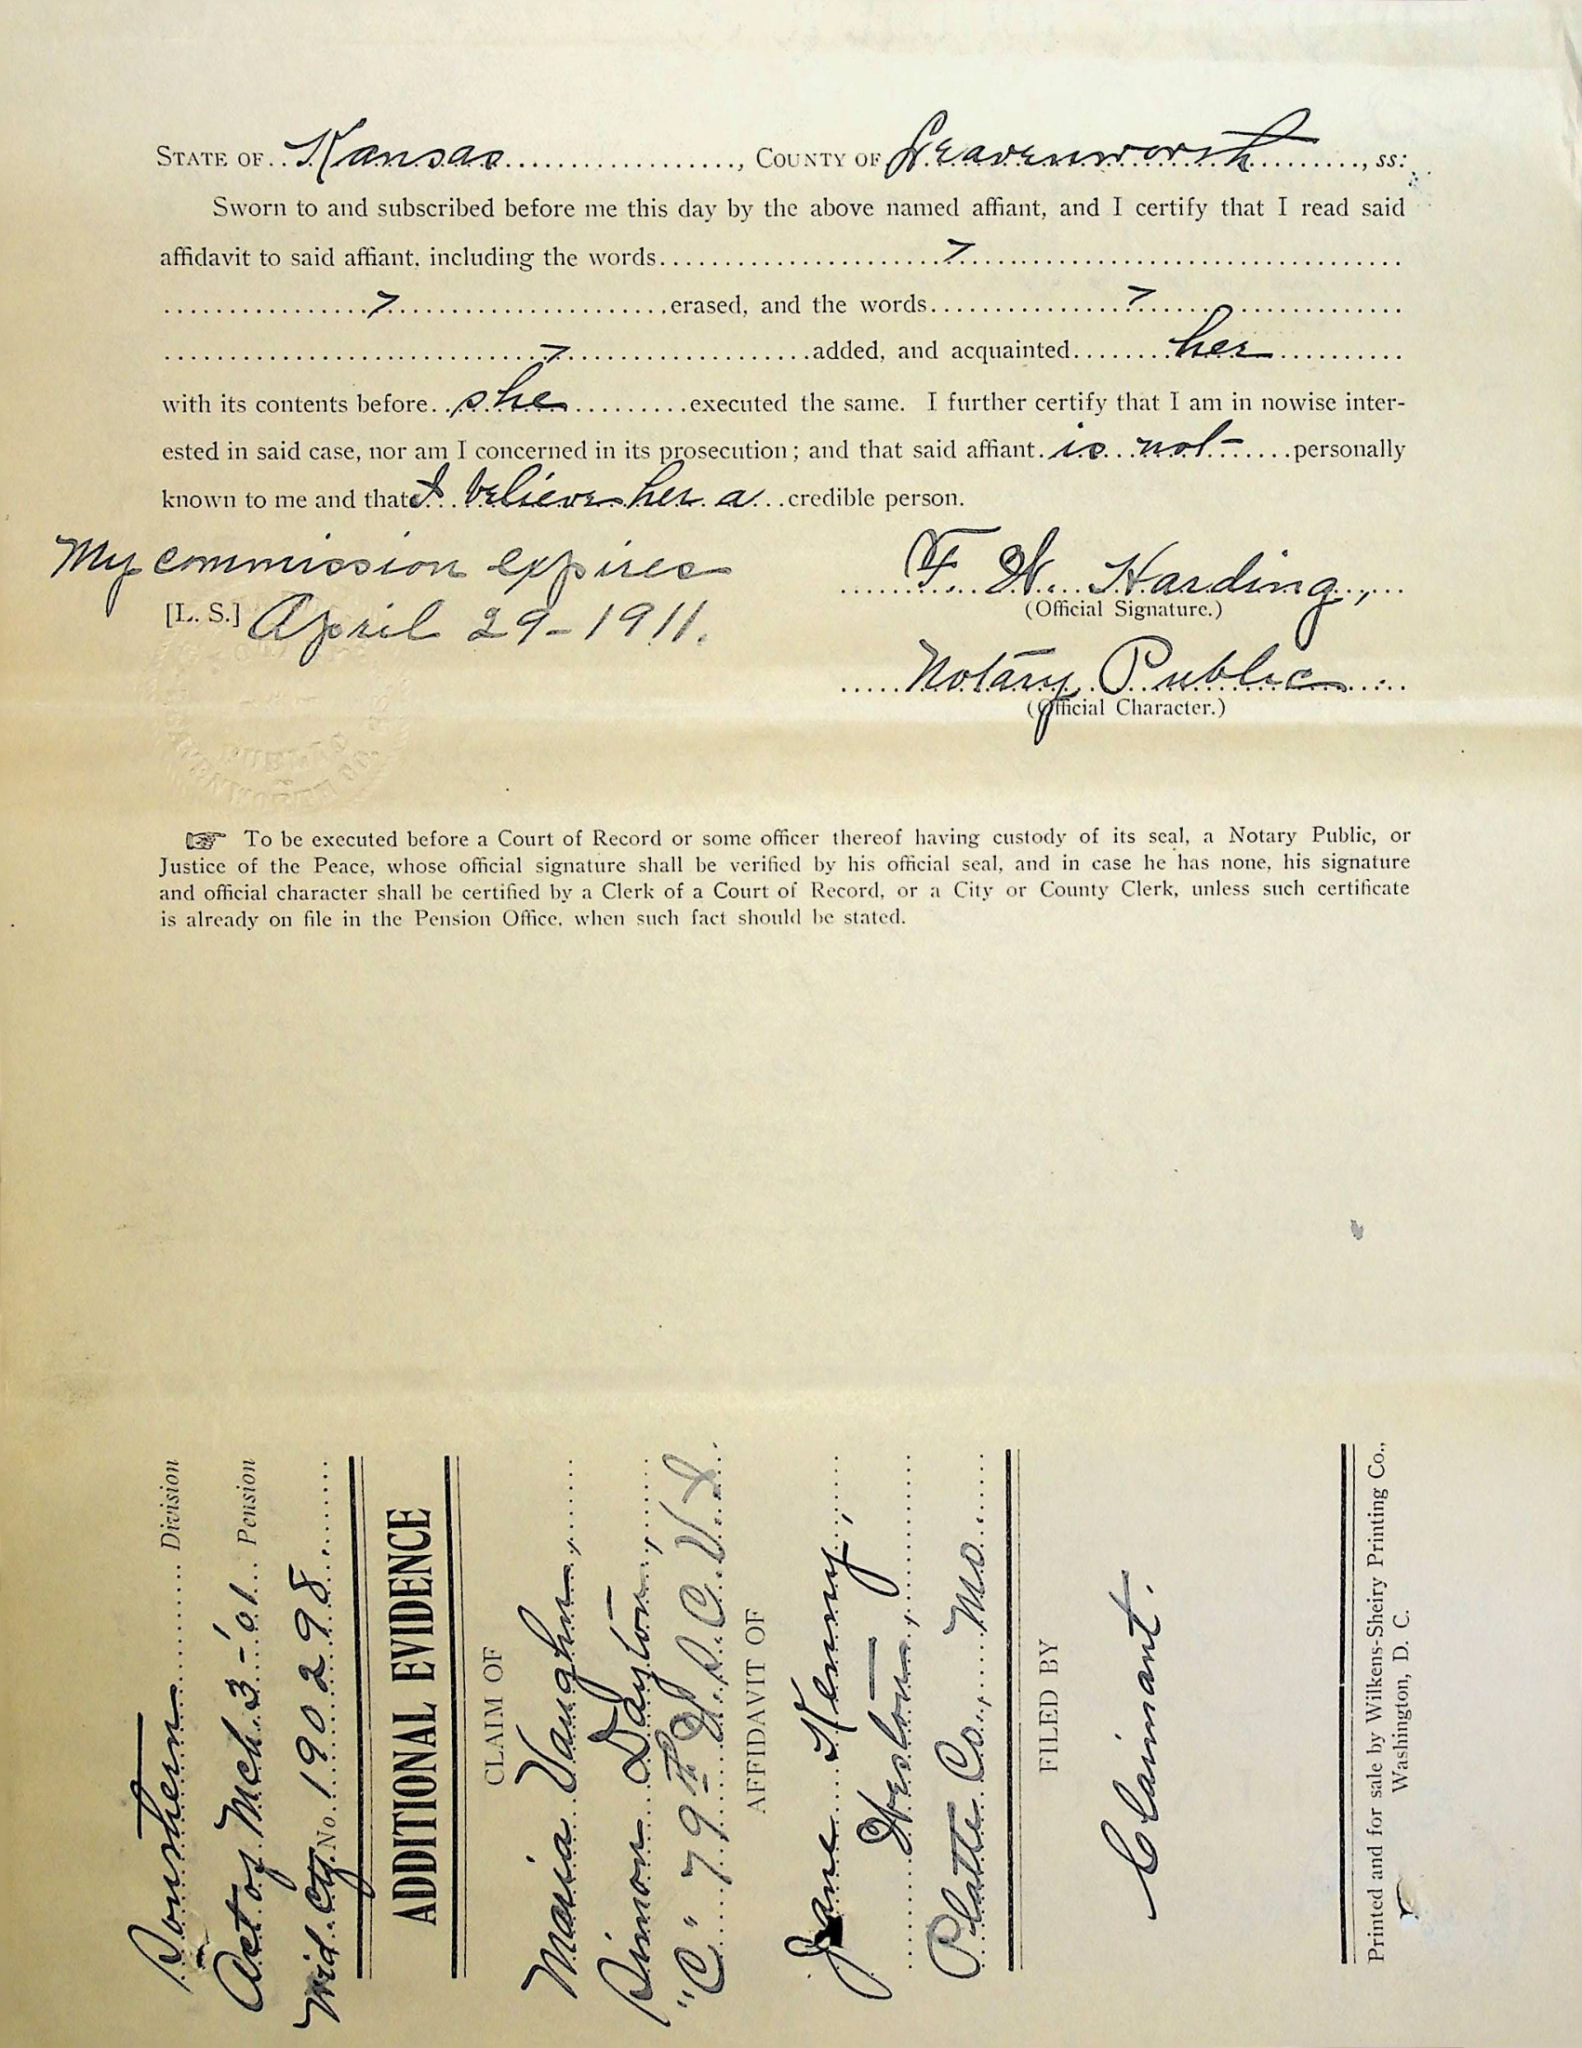 STATE OF Kansas, COUNTY OF Leavenworth, ss:
Sworn to and subscribed before me this day by the above named affiant, and I certify that I read said
affidavit to said affiant, including the words
erased, and the words
added, and acquainted her
with its contents before she executed the same. I further certify that I am in nowise inter-
ested in said case, nor am I concerned in its prosecution; and that said affiant is not personally
known to me and that I believe her a credible person.
My commission expires
[L. S.] April 29-1911.
F. W. Harding,
(Official Signature.)
Notary Public
(Official Character.)
☞ To be executed before a Court of Record or some officer thereof having custody of its seal, a Notary Public, or
Justice of the Peace, whose official signature shall be verified by his official seal, and in case he has none, his signature
and official character shall be certified by a Clerk of a Court of Record, or a City or County Clerk, unless such certificate
is already on file in the Pension Office, when such fact should be stated.
Southern Division
Act of Mch. 3-'01 Pension
Wid. Ctf. No. 190298
ADDITIONAL EVIDENCE
CLAIM OF
Maria Vaughn,
Simon Dayton,
"C" 79th U.S.C.V.I
AFFIDAVIT OF
Jane Kenny,
Weston,
Platte Co., Mo.
FILED BY
Claimant.
Printed and for sale by Wilkens-Sheiry Printing Co.,
Washington, D. C.